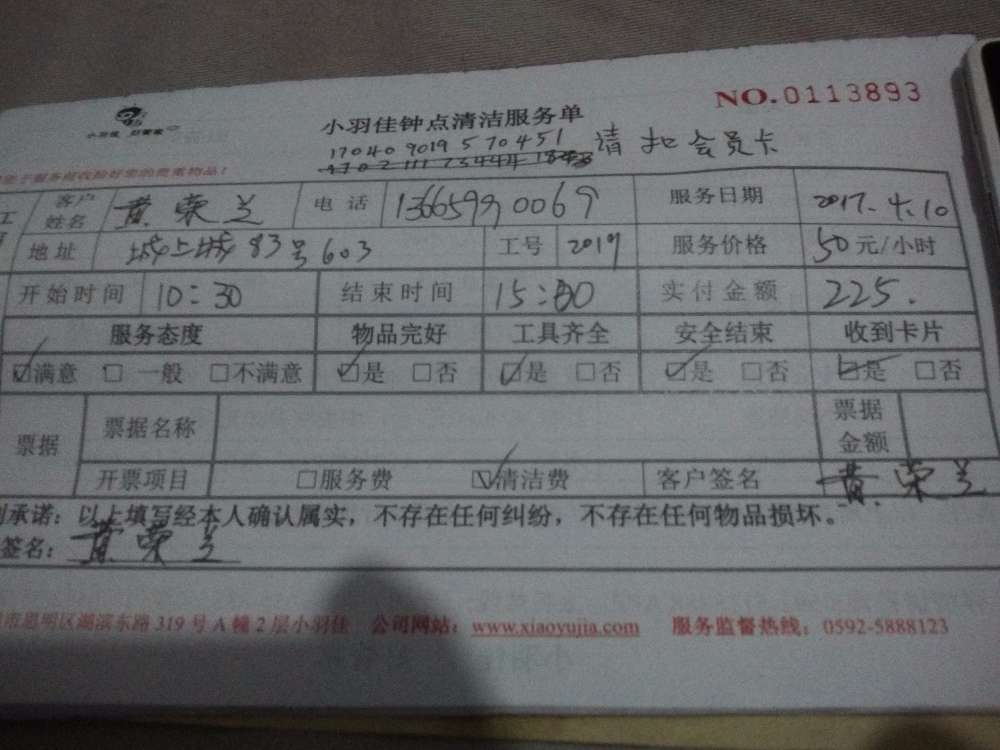 NO.0113893
小羽佳 好管家
小羽佳钟点清洁服务单
17040 9019 570451 请扣会员卡
客户姓名 黄荣兰 电话 13665990069 服务日期 2017.4.10
地址 城上城83号603 工号 2019 服务价格 50元/小时
开始时间 10:30 结束时间 15:00 实付金额 225.
服务态度 物品完好 工具齐全 安全结束 收到卡片
☑满意 □一般 □不满意 ☑是 □否 ☑是 □否 ☑是 □否 ☑是 □否
票据 票据名称 票据金额
开票项目 □服务费 ☑清洁费 客户签名 黄荣兰
承诺：以上填写经本人确认属实，不存在任何纠纷，不存在任何物品损坏。
签名：黄荣兰
市思明区湖滨东路319号A幢2层小羽佳 公司网站：www.xiaoyujia.com 服务监督热线：0592-5888123